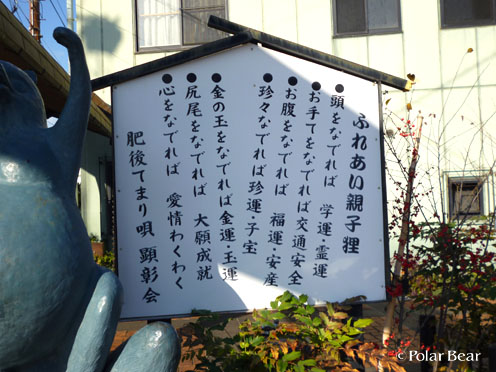 ふれあい親子狸
●頭をなでれば 学運・霊運
●お手てをなでれば交通安全
●お腹をなでれば 福運・安産
●珍々なでれば珍運・子宝
●金の玉をなでれば金運・玉運
●尻尾をなでれば 大願成就
●心をなでれば 愛情わくわく
肥後てまり唄 顕彰会
© Polar Bear